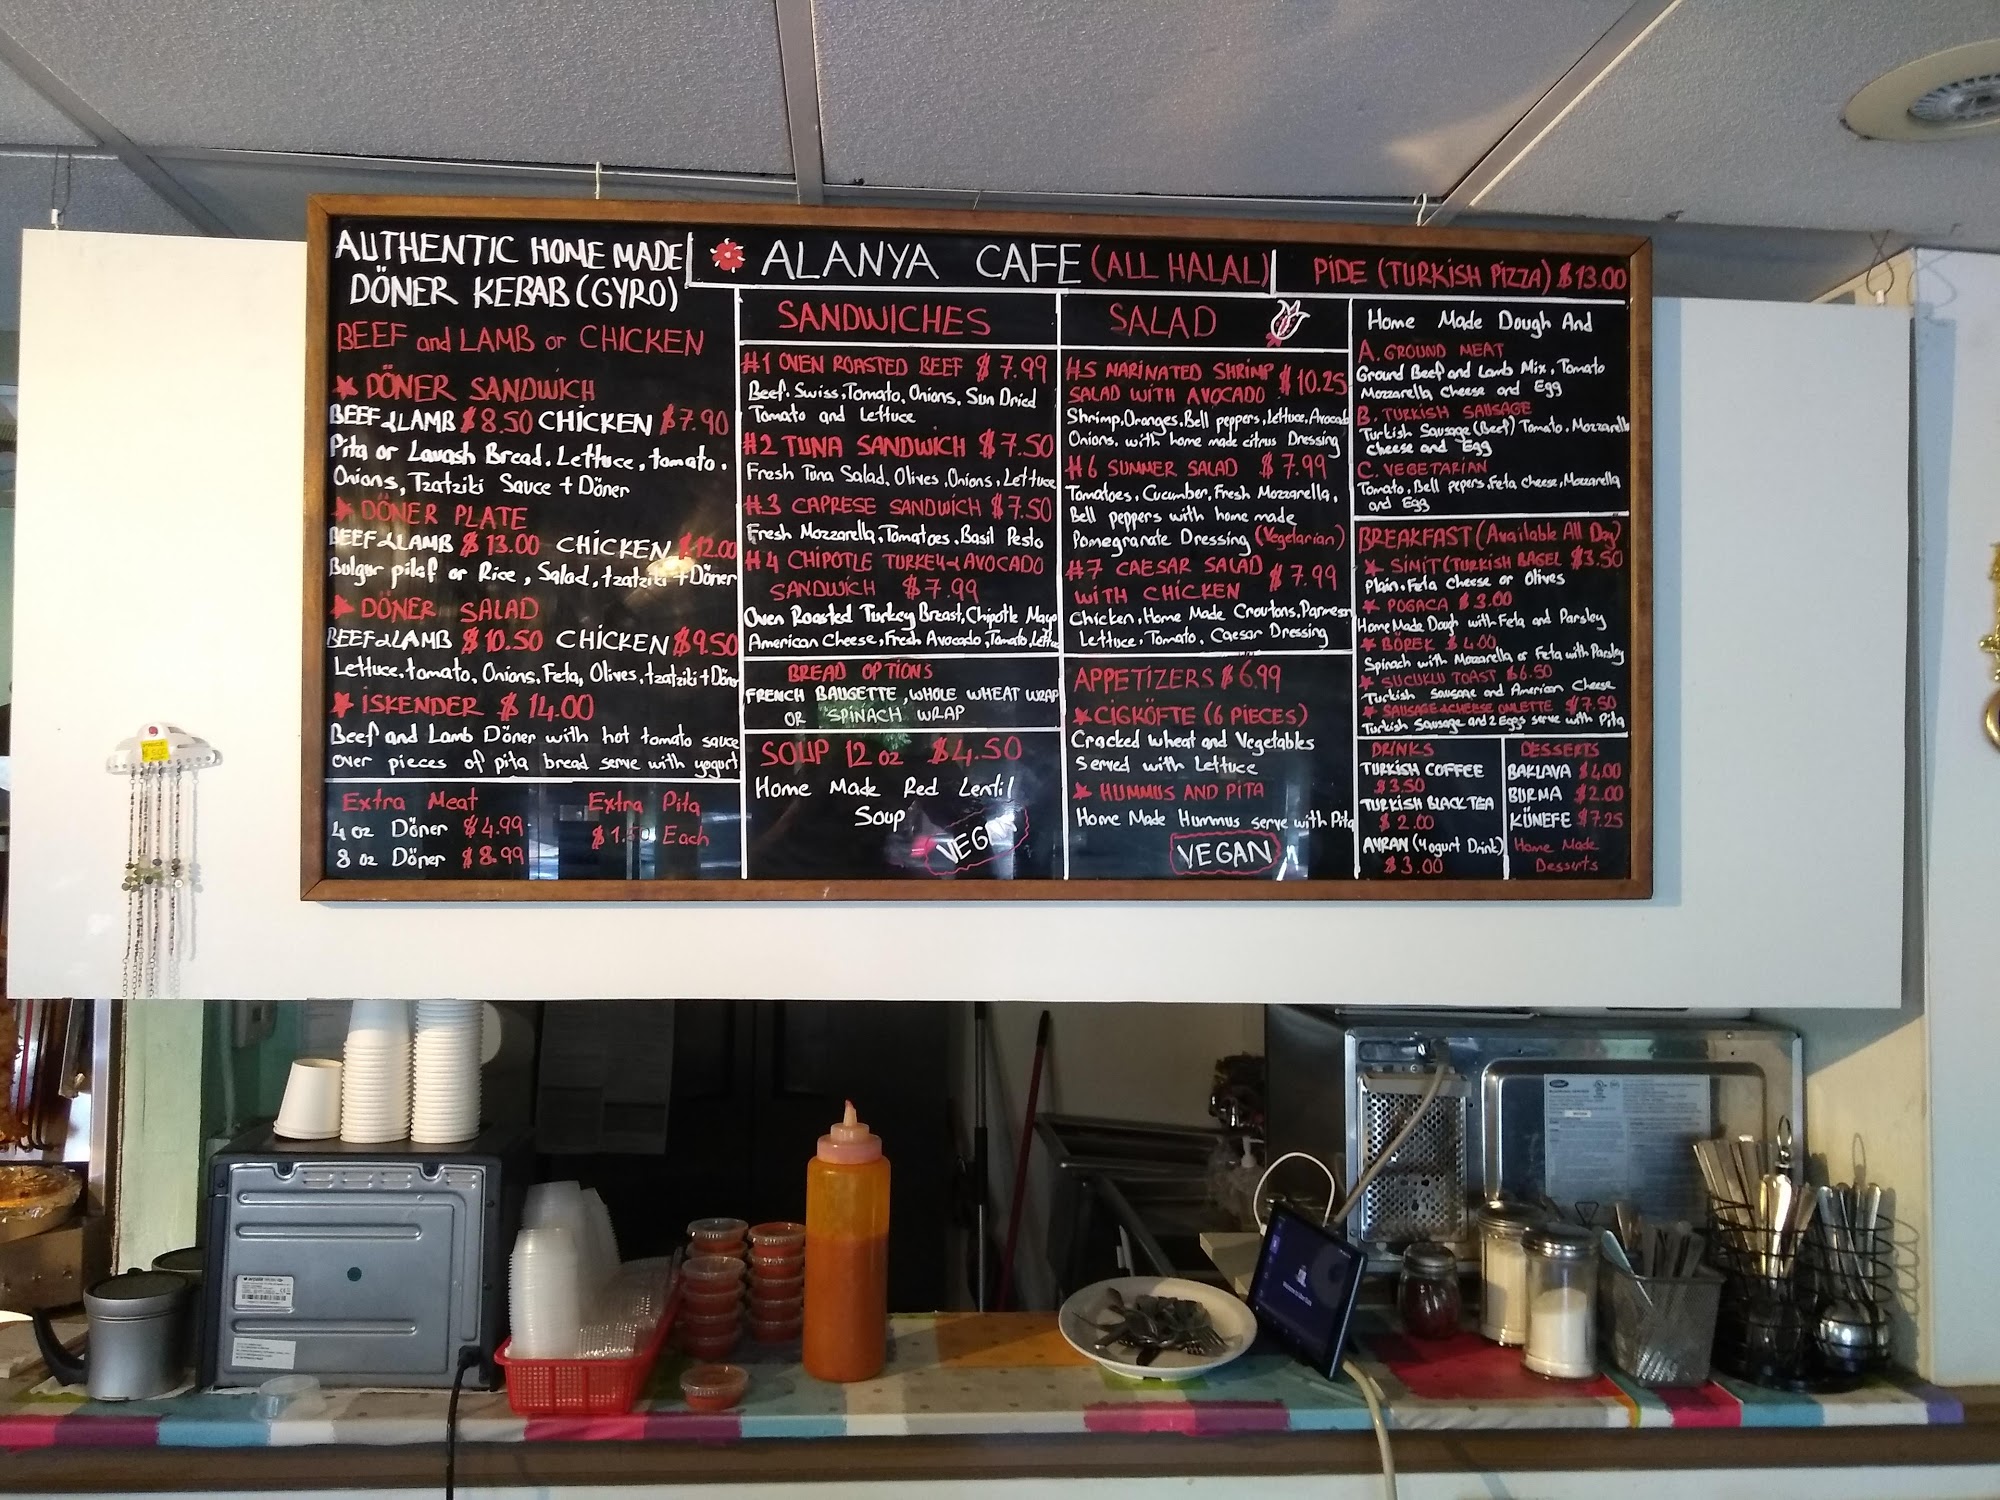 AUTHENTIC HOME MADE
DÖNER KEBAB (GYRO)
BEEF and LAMB or CHICKEN
DÖNER SANDWiCH
BEEF & LAMB $ 8.50 CHiCKEN $ 7.90
Pita or Lavash Bread, Lettuce, tomato,
Onions, Tzatziki Sauce + Döner
DÖNER PLATE
BEEF & LAMB $ 13.00 CHiCKEN $12.00
Bulgur pilaf or Rice, Salad, tzatziki + Döner
DÖNER SALAD
BEEF & LAMB $ 10.50 CHiCKEN $9.50
Lettuce, tomato, Onions, Feta, Olives, tzatziki + Döner
İSKENDER $ 14.00
Beef and Lamb Döner with hot tomato sauce
over pieces of pita bread serve with yogurt
Extra Meat
4 oz Döner $4.99
8 oz Döner $ 8.99
Extra Pita
Each
ALANYA CAFE (ALL HALAL)
SANDWiCHES
#1 OVEN ROASTED BEEF $ 7.99
Beef, Swiss, Tomato, Onions, Sun Dried
Tomato and Lettuce
#2 TUNA SANDWiCH $ 7.50
Fresh Tuna Salad, Olives, Onions, Lettuce
#3 CAPRESE SANDWiCH $ 7.50
Fresh Mozzarella, Tomatoes, Basil Pesto
#4 CHiPOTLE TURKEY & AVOCADO
SANDWiCH $ 7.99
Oven Roasted Turkey Breast, Chipotle Mayo
American Cheese, Fresh Avocado, Tomato, Lettuce
BREAD OPTiONS
FRENCH BAUGETTE, WHOLE WHEAT WRAP
OR SPINACH WRAP
SOUP 12 oz $4.50
Home Made Red Lentil
Soup
VEGAN
SALAD
#5 MARINATED SHRIMP
SALAD WITH AVOCADO $ 10.25
Shrimp, Oranges, Bell peppers, Lettuce, Avocado
Onions, with home made citrus Dressing
#6 SUMMER SALAD $ 7.99
Tomatoes, Cucumber, Fresh Mozzarella,
Bell peppers with home made
Pomegranate Dressing (Vegetarian)
#7 CAESAR SALAD
WiTH CHiCKEN $ 7.99
Chicken, Home Made Croutons, Parmesn
Lettuce, Tomato, Caesar Dressing
APPETiZERS $ 6.99
CIGKÖFTE (6 PiECES)
Cracked wheat and Vegetables
Served with Lettuce
HUMMUS AND PiTA
Home Made Hummus serve with Pita
VEGAN
PiDE (TURKiSH PiZZA) $ 13.00
Home Made Dough And
A. GROUND MEAT
Ground Beef and Lamb Mix, Tomato
Mozzarella Cheese and Egg
B. TURKISH SAUSAGE
Turkish Sausage (Beef) Tomato, Mozzarella
Cheese and Egg
C. VEGETARIAN
Tomato, Bell pepers, Feta cheese, Mozzarella
and Egg
BREAKFAST (Available All Day)
SiMiT (TURKISH BAGEL $3.50
Plain, Feta Cheese or Olives
POGACA $ 3.00
Home Made Dough with Feta and Parsley
BÖREK $ 4.00
Spinach with Mozzarella or Feta with Parsley
SUCUKLU TOAST $ 6.50
Turkish Sausage and American Cheese
SAUSAGE & CHEESE OMLETTE $ 7.50
Turkish Sausage and 2 Eggs serve with Pita
DRiNKS
TURKiSH COFFEE
$ 3.50
TURKISH BLACK TEA
$ 2.00
AYRAN (Yogurt Drink)
$ 3.00
DESSERTS
BAKLAVA $ 4.00
BURMA $ 2.00
KÜNEFE $ 7.25
Home Made
Desserts